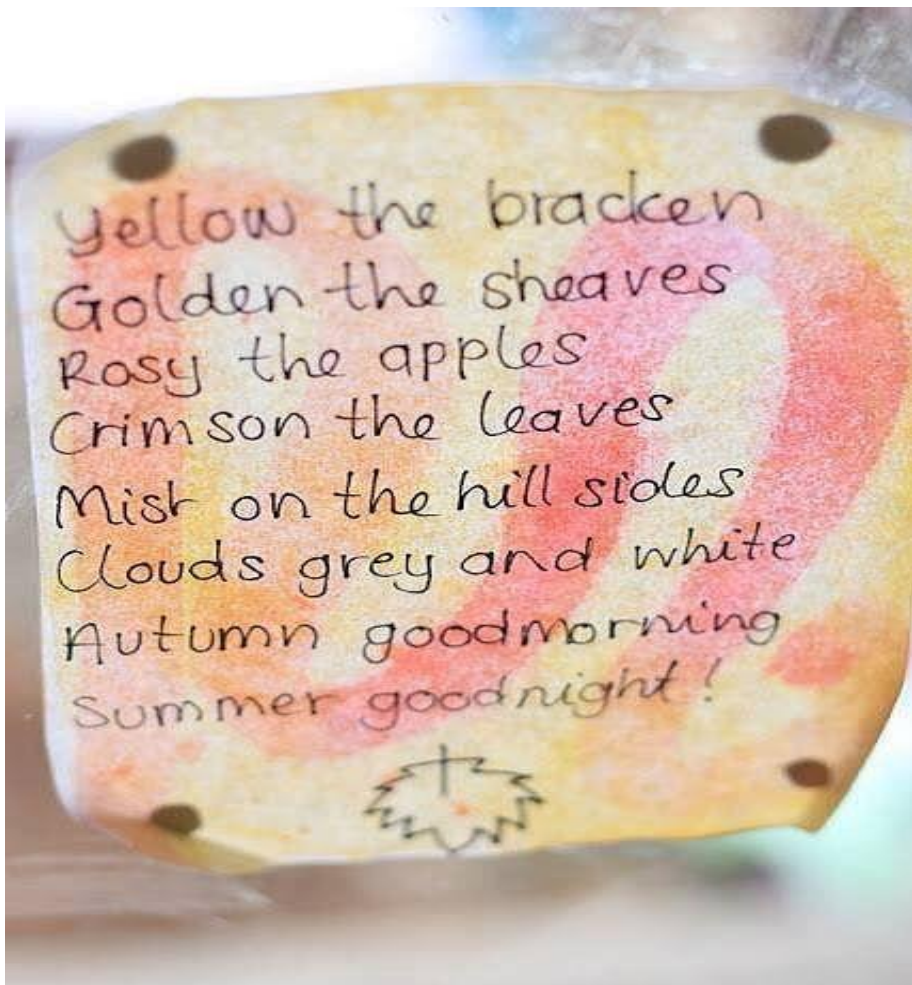 Yellow the bracken
Golden the sheaves
Rosy the apples
Crimson the leaves
Mist on the hill sides
Clouds grey and white
Autumn goodmorning
Summer goodnight!